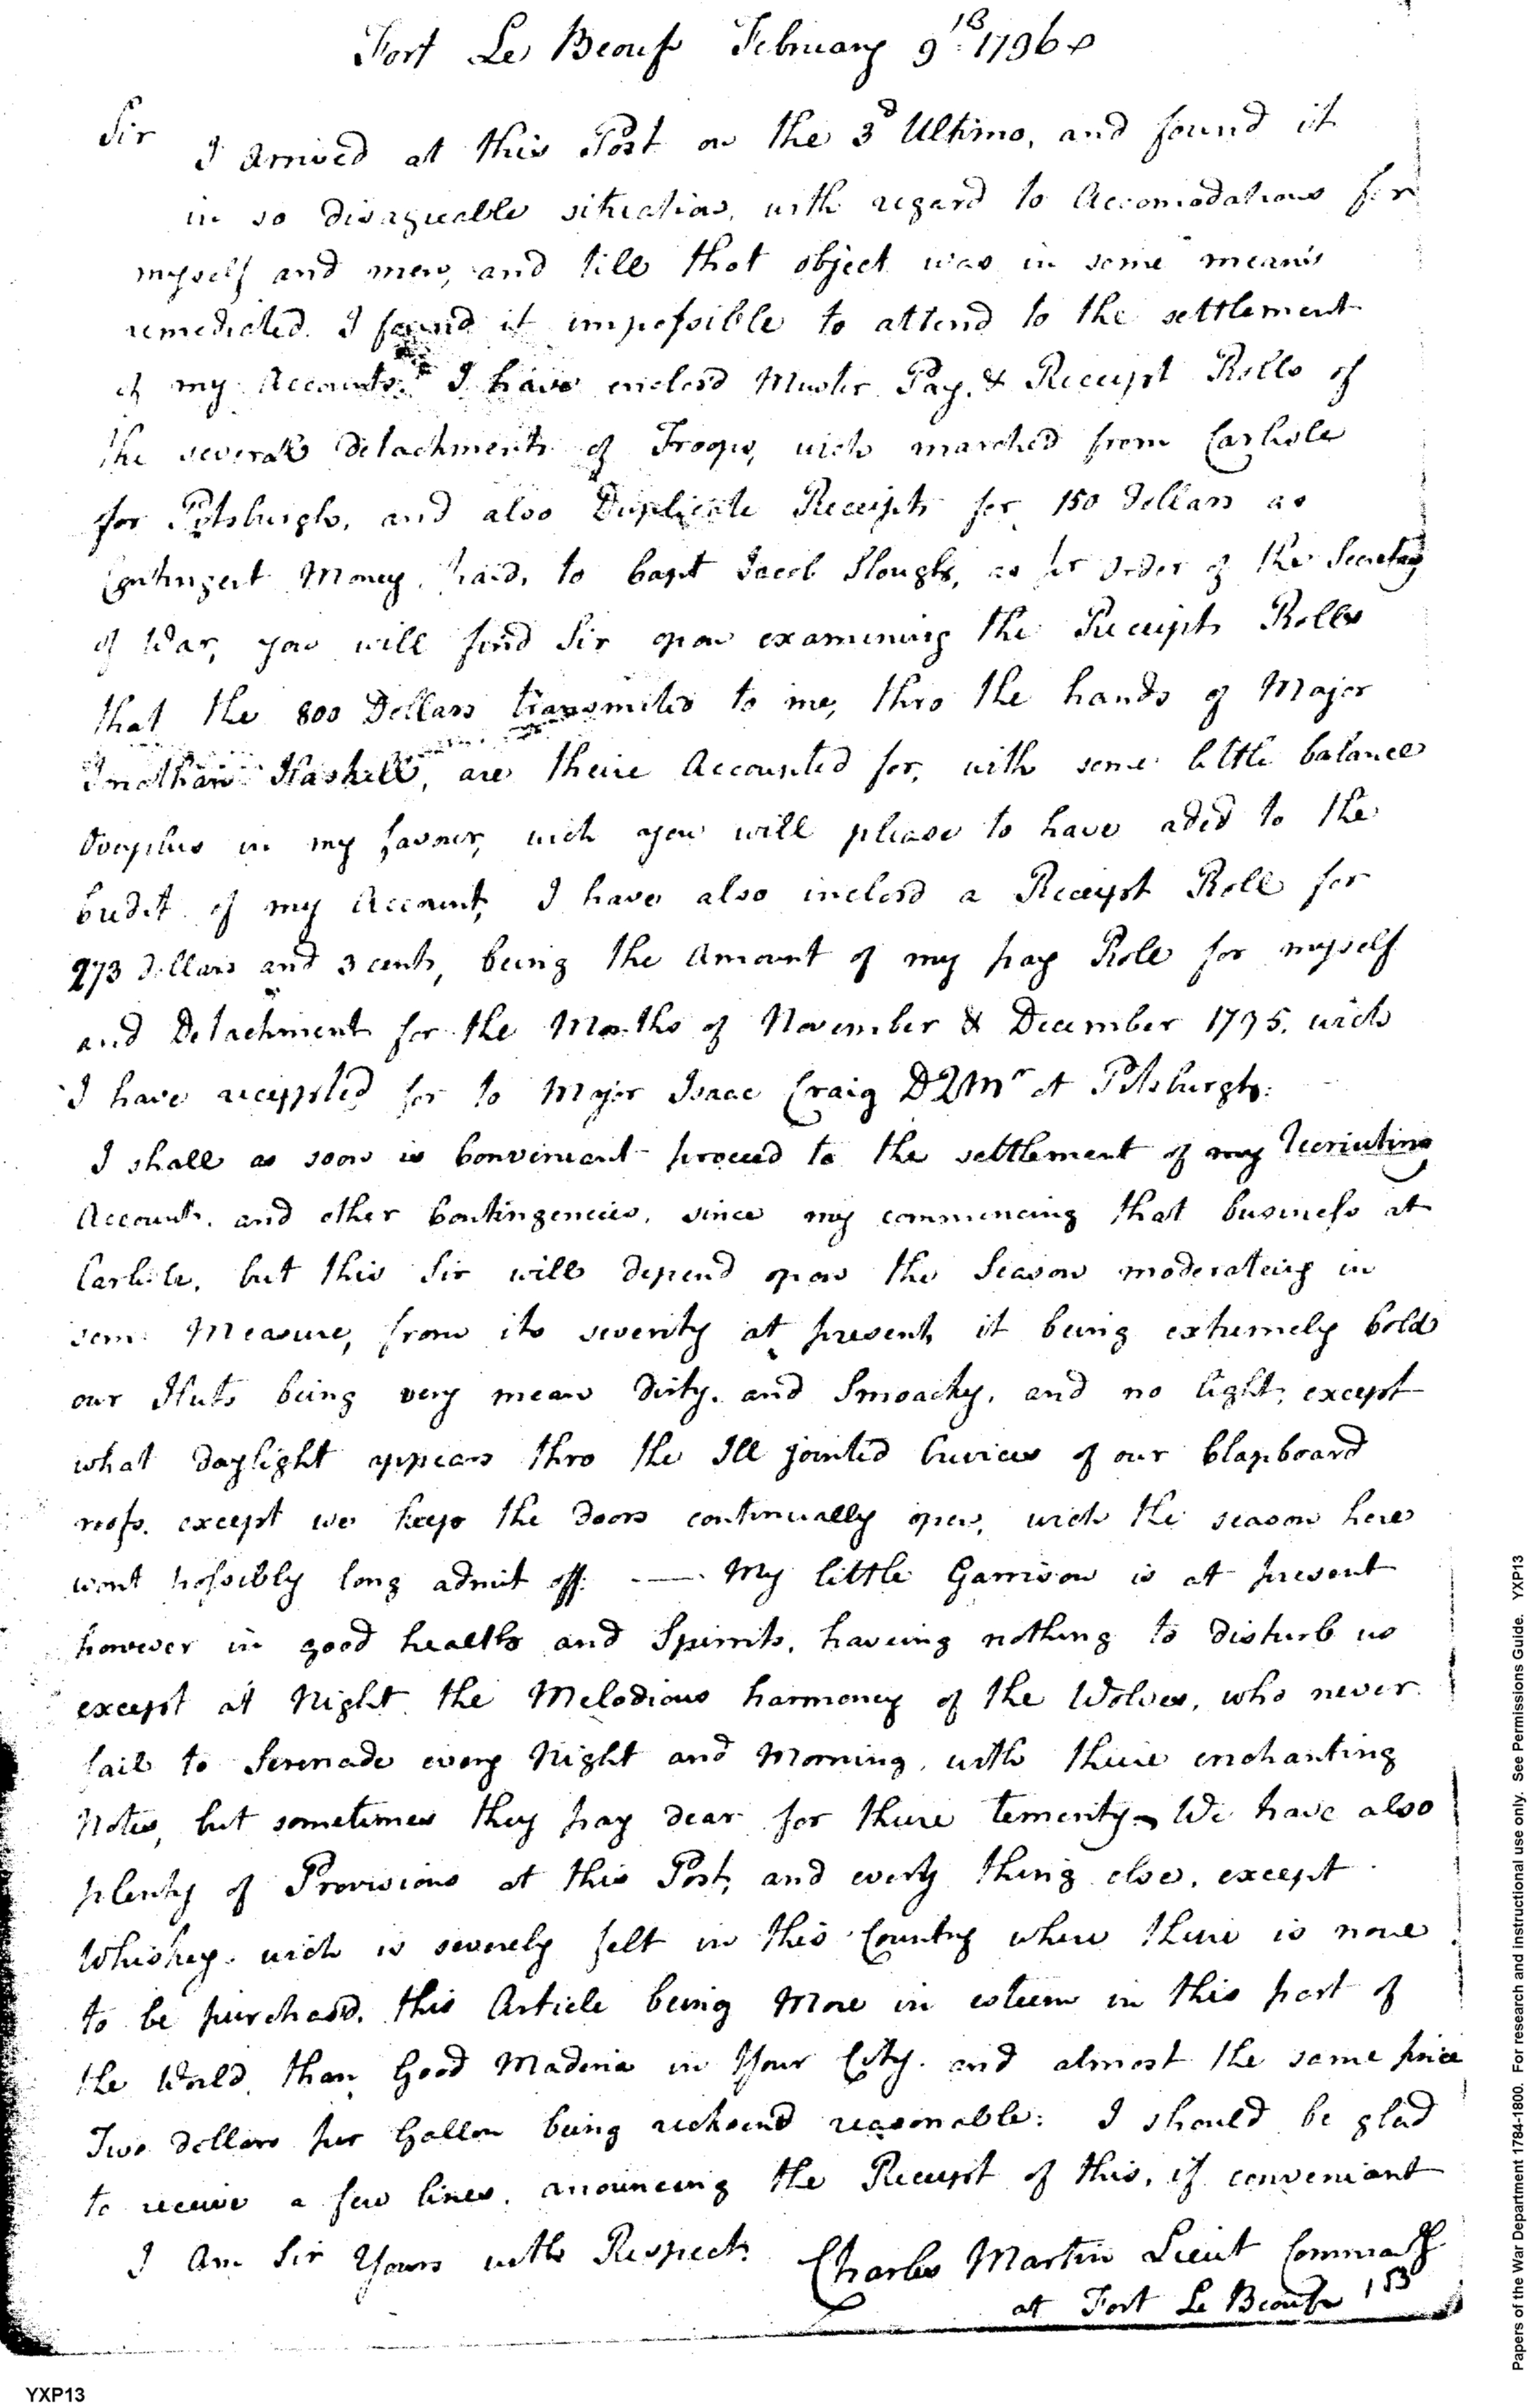 Fort Le Beouf February 9th 1796
Sir
I Arrived at this Post on the 3d Ultimo, and found it
in so disagueable situation, with regard to Accomodations for
myself and men, and till that object was in some means
remediated. I found it impossible to attend to the settlement
of my Accounts. I have enclosd Muster Pay, & Receipt Rolls of
the several detachments of Troops, wich marched from Carlisle
for Pitsburgh, and also Duplicate Receipts for 150 Dollars as
Contingent Money, paid, to Capt Jacob Slough, as pr order of the Secretary
of War, you will find Sir upon examining the Receipts Rolls
that the 800 Dollars transmited to me, thro the hands of Major
Jonathan Haskell, are theire Accounted for, with some little balance
Overplus in my favour, wich you will please to have aded to the
Credit of my Account, I have also inclosd a Receipt Roll for
273 dollars and 3 cents, being the Amount of my pay Role for myself
and Detachment for the Months of November & December 1795. wich
I have receippted for to Major Isaac Craig DQMr at Pitsburgh.
I shall as soon is Conveniant proceed to the settlement of my Recriuting
Accounts. and other Contingencies, since my commencing that business at
Carlisle, but this Sir will depend upon the Season moderateing in
some Measure, from its severity at present, it being extremely Cold
our Huts being very mean Dirty. and Smoacky, and no light, except
what daylight appears thro the Ill jointed Crevices of our Clapboard
roofs. except we keep the doors continually open, wich the season here
wont possibly long admit off. —— My little Garrison is at present
however in good health and Spirrits, haveing nothing to disturb us
except at Night the Melodious harmoney of the Wolves, who never
fail to Serenade every Night and Morning, with theire enchanting
Notes, but sometimes they pay dear for theire temerity – We have also
plenty of Provisions at this Post, and every thing else, except
Whiskey. wich is severely felt in this Country where there is none
to be purchasd. this Article being More in esteem in this part of
the World, than Good Maderia in Your City. and almost the same price
Two dollars per Gallon being reckoned reasonable: I should be glad
to receive a few lines, anouncing the Receipt of this, if conveniant
I Am Sir Yours with Respect.
Charles Martin Lieut Command
at Fort Le Beouf
153
Papers of the War Department 1784-1800. For research and instructional use only. See Permissions Guide. YXP13
YXP13